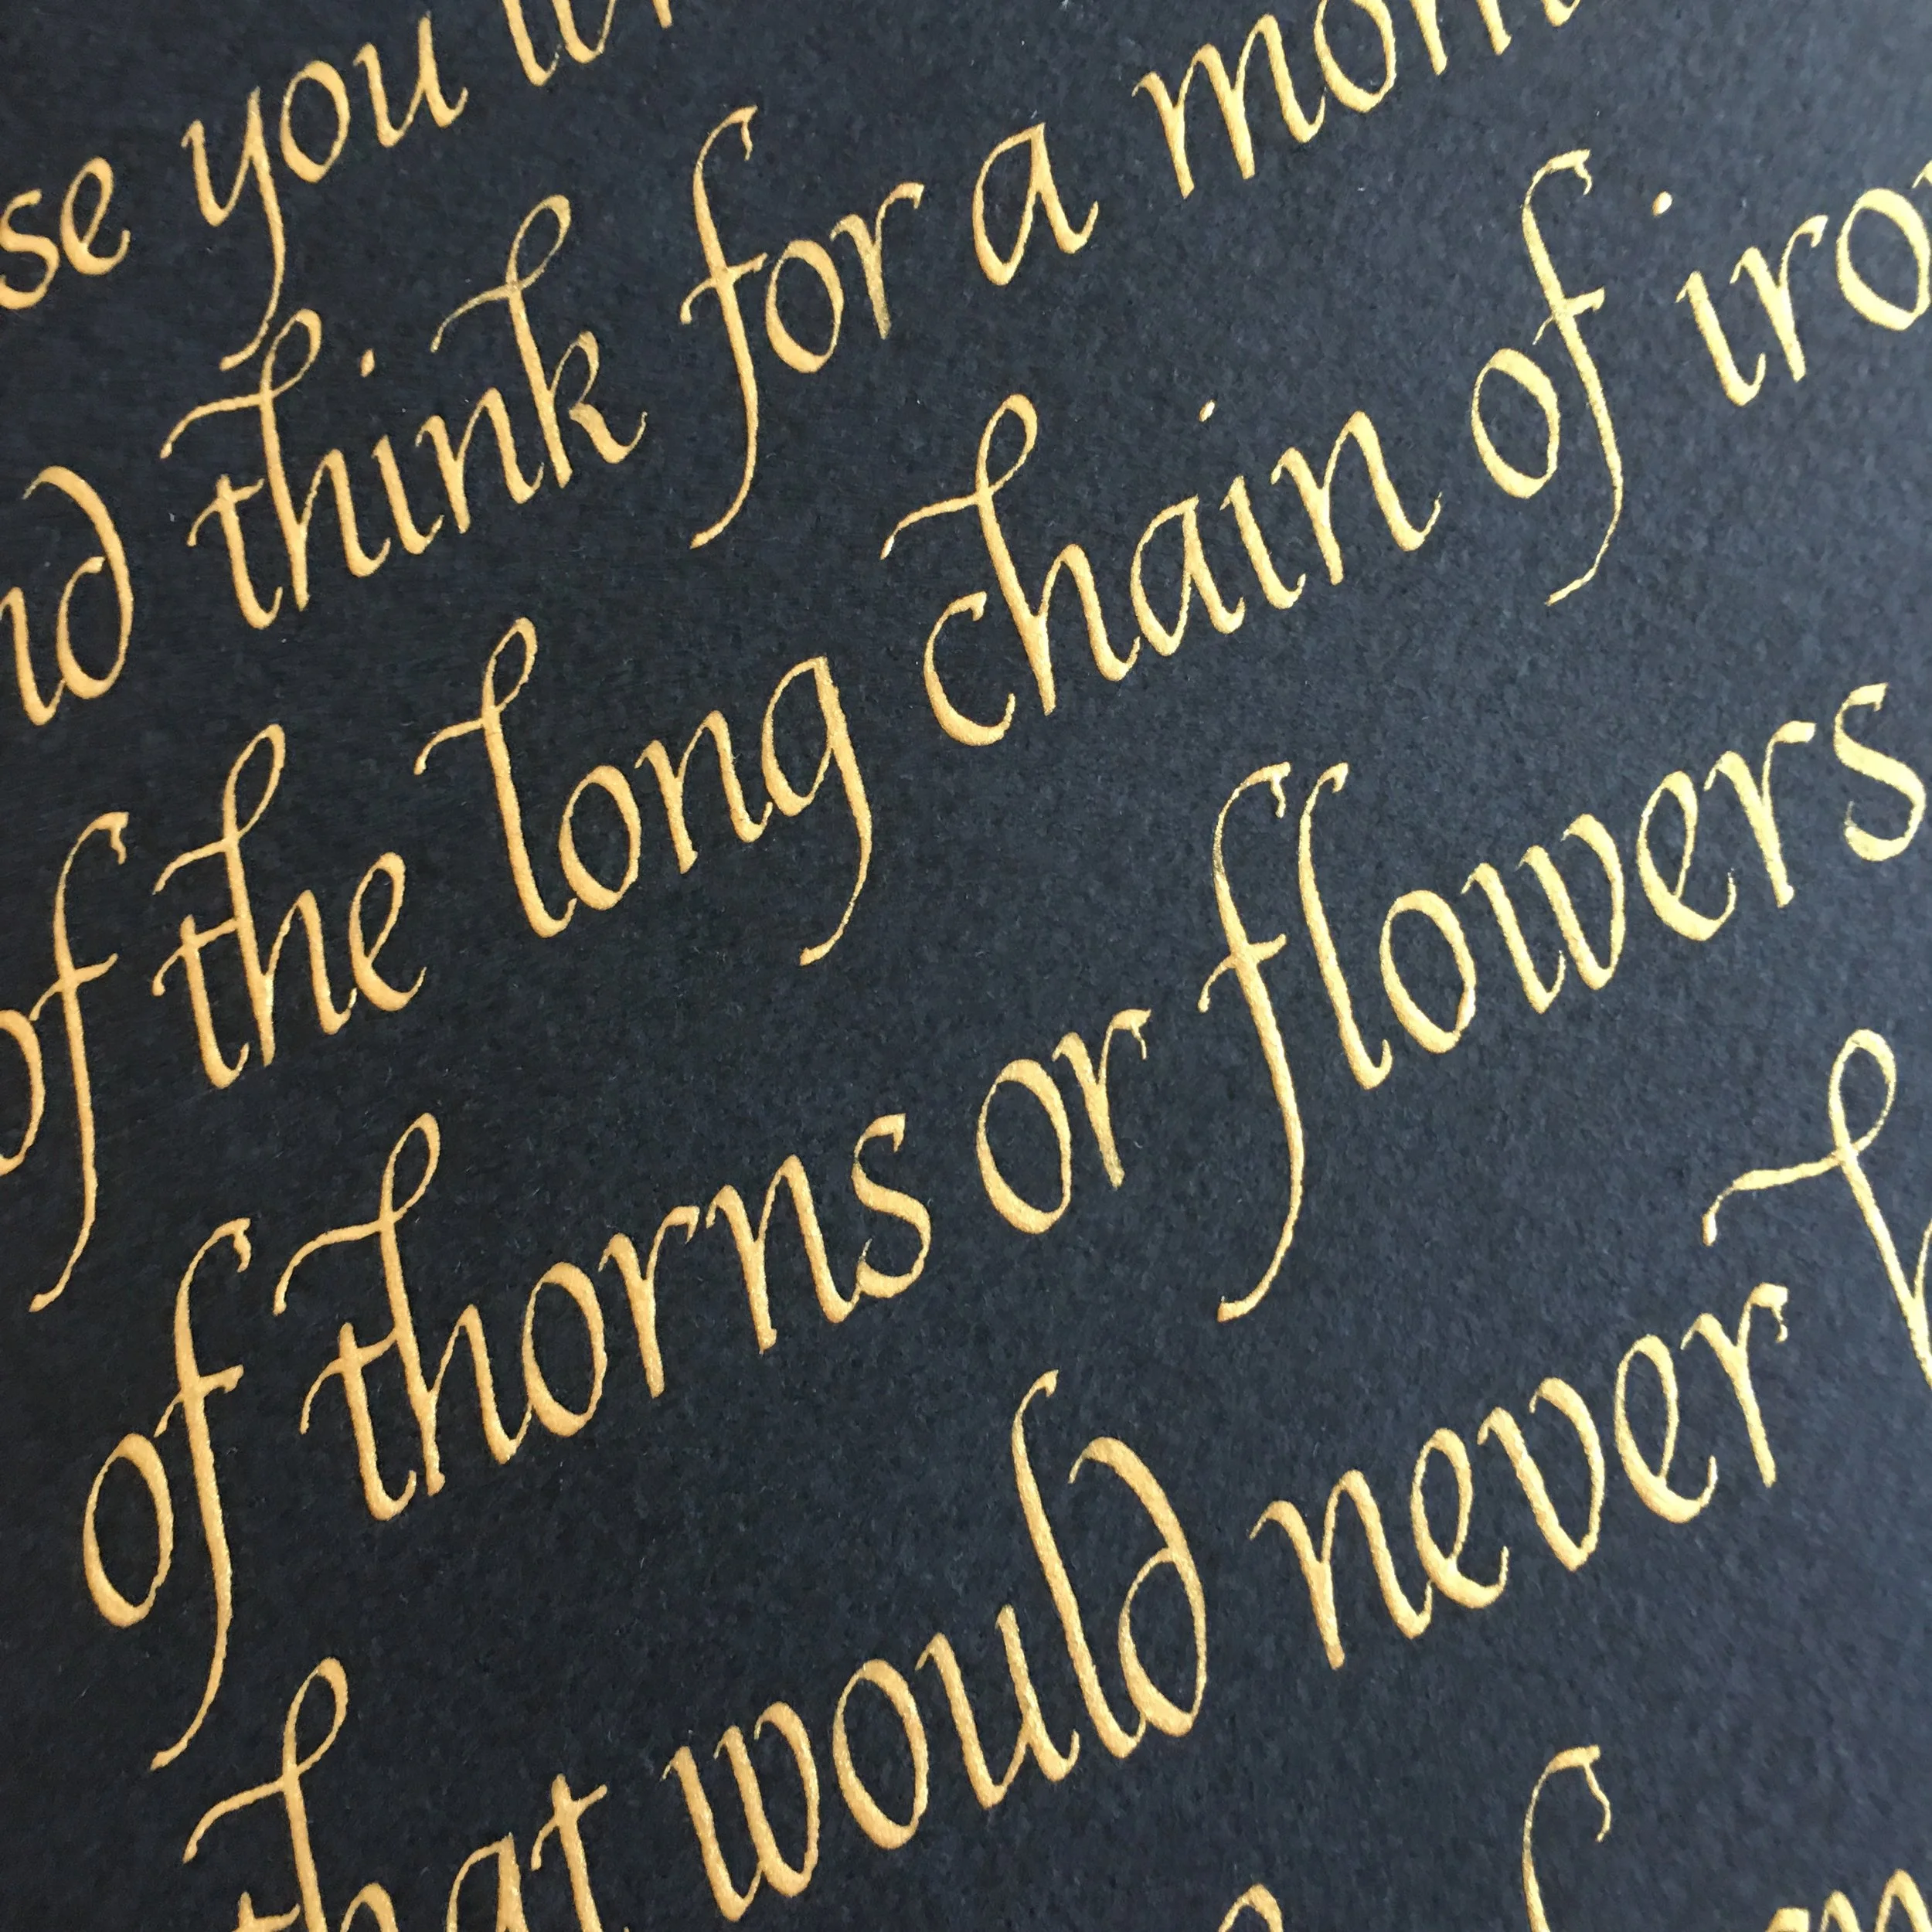 se you
nd think for a mom
of the long chain of iro
of thorns or flowers
that would never h